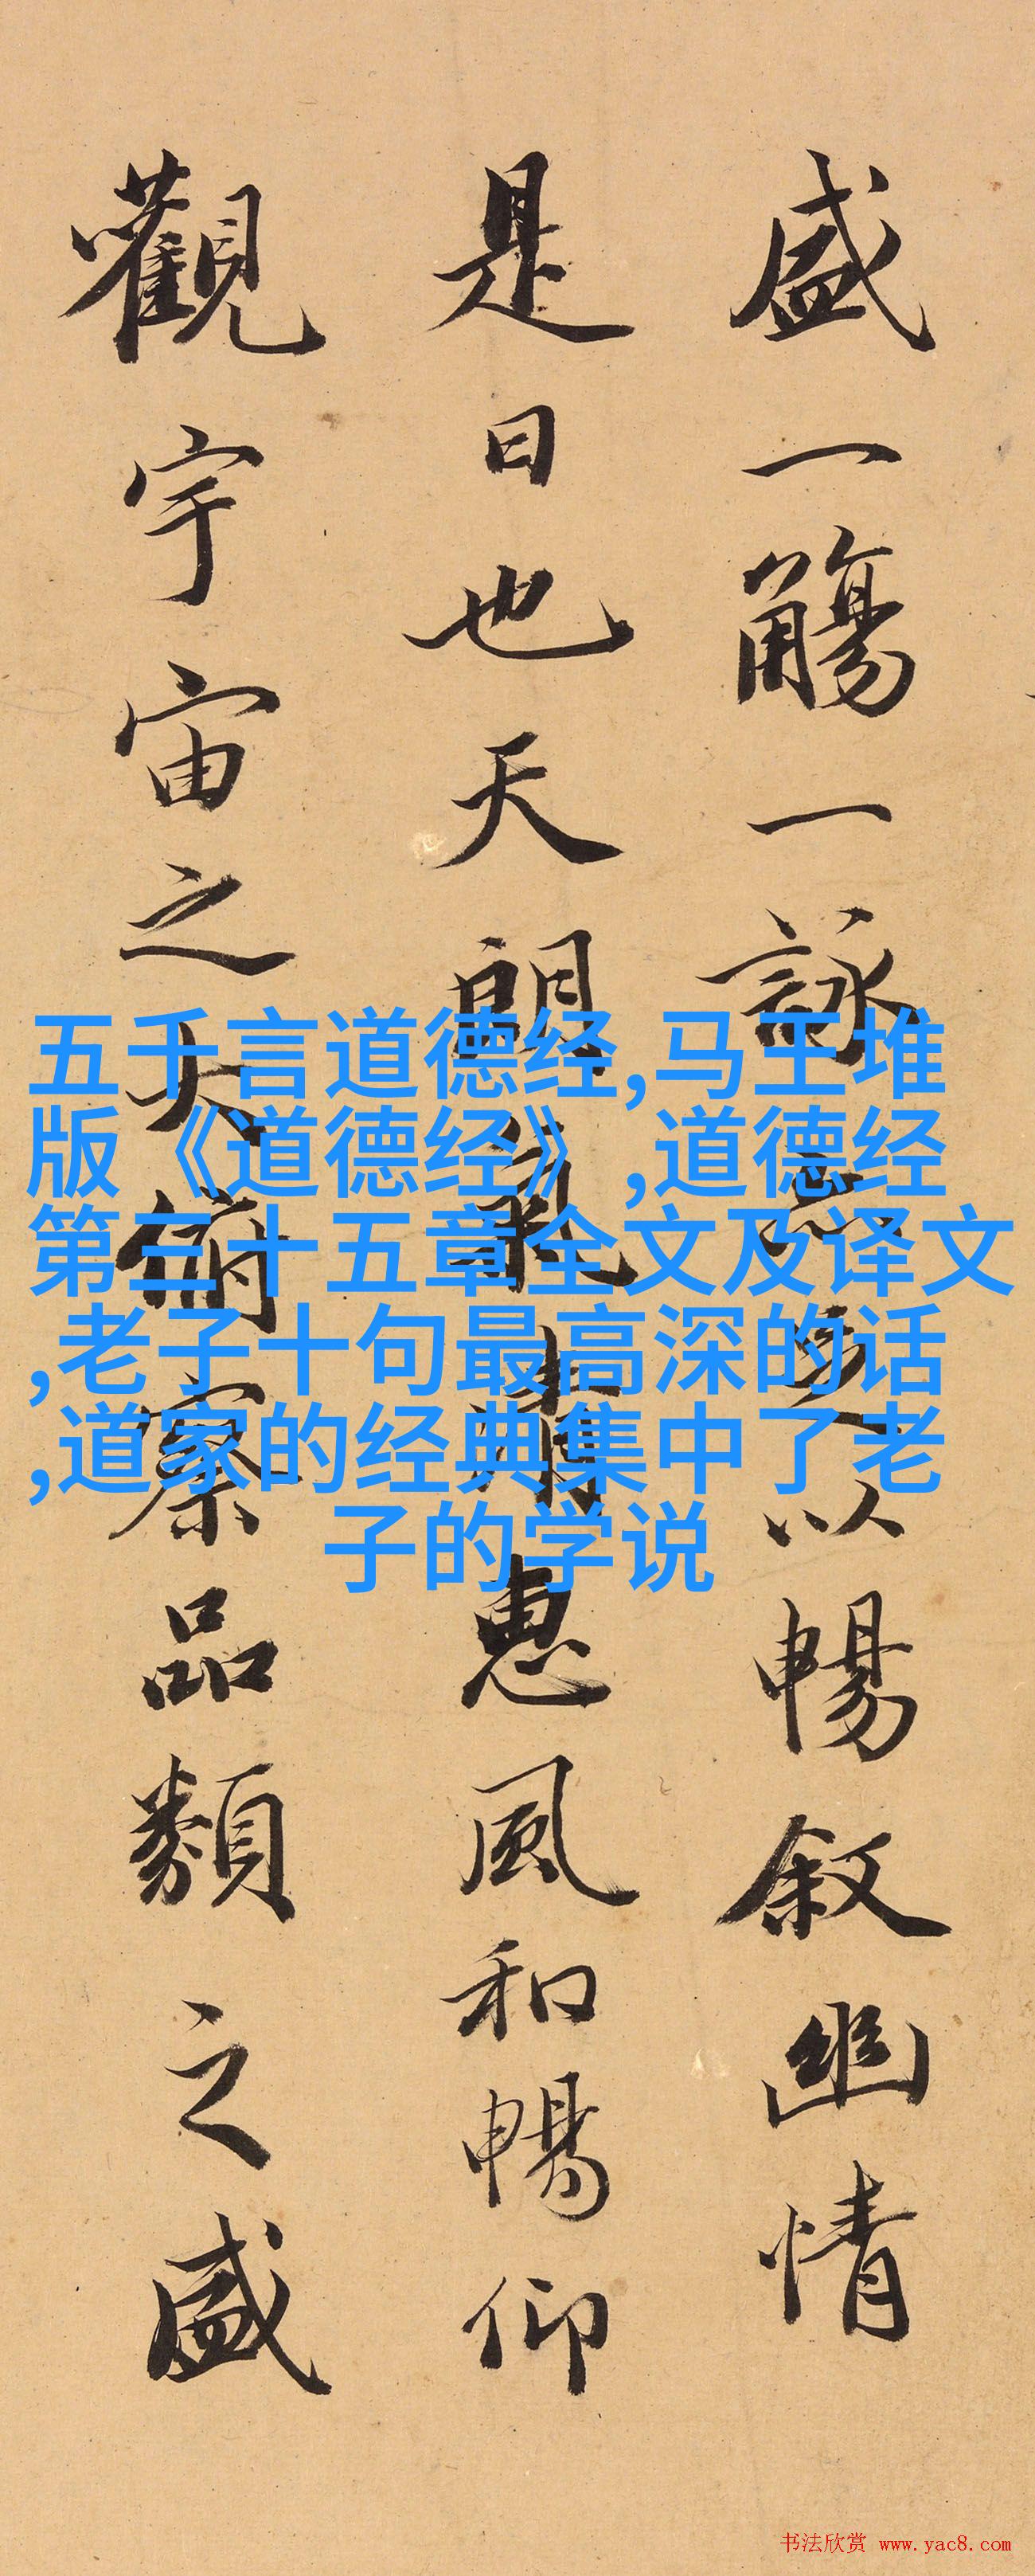 盛一觴一詠亦足以暢叙幽情
是日也天朗氣清惠風和暢仰
觀宇宙之大俯察品類之盛
五千言道德经,马王堆
版《道德经》,道德经
第三十五章全文及译文
,老子十句最高深的话
,道家的经典集中了老
子的学说
书法欣赏 www.yac8.com